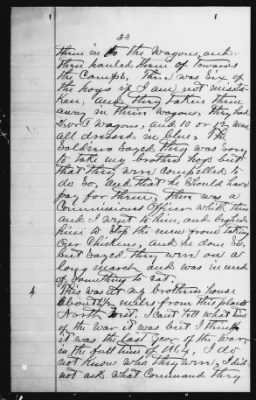 33
them in to the Wagons, and
then hauled them of towards
the Camps. There was Six of
the hogs if I am not mista-
ken, and they taken them
away in their Wagons, they had
2 or 3 wagons, and 10 or 12 men
all dressed in blue. The
Soldiers Sayed they was Sorry
to take my brothers hogs but
that they were compelled to
do So, and that he Should have
pay for them. There was a
Commissioned Officer with them
and I went to him, and begged
him to Stop the men from taking
Our Chickens, and he done So,
but Sayed they were on a
long march and was in need
of Something to eat.
4
This was at my brothers house
about 2½ miles from this place
North West. I can't tell what time
of the War it was but I think
it was the last year of the War
in the fall time of 1864. I do
not know who they were, I did
not ask what Command they